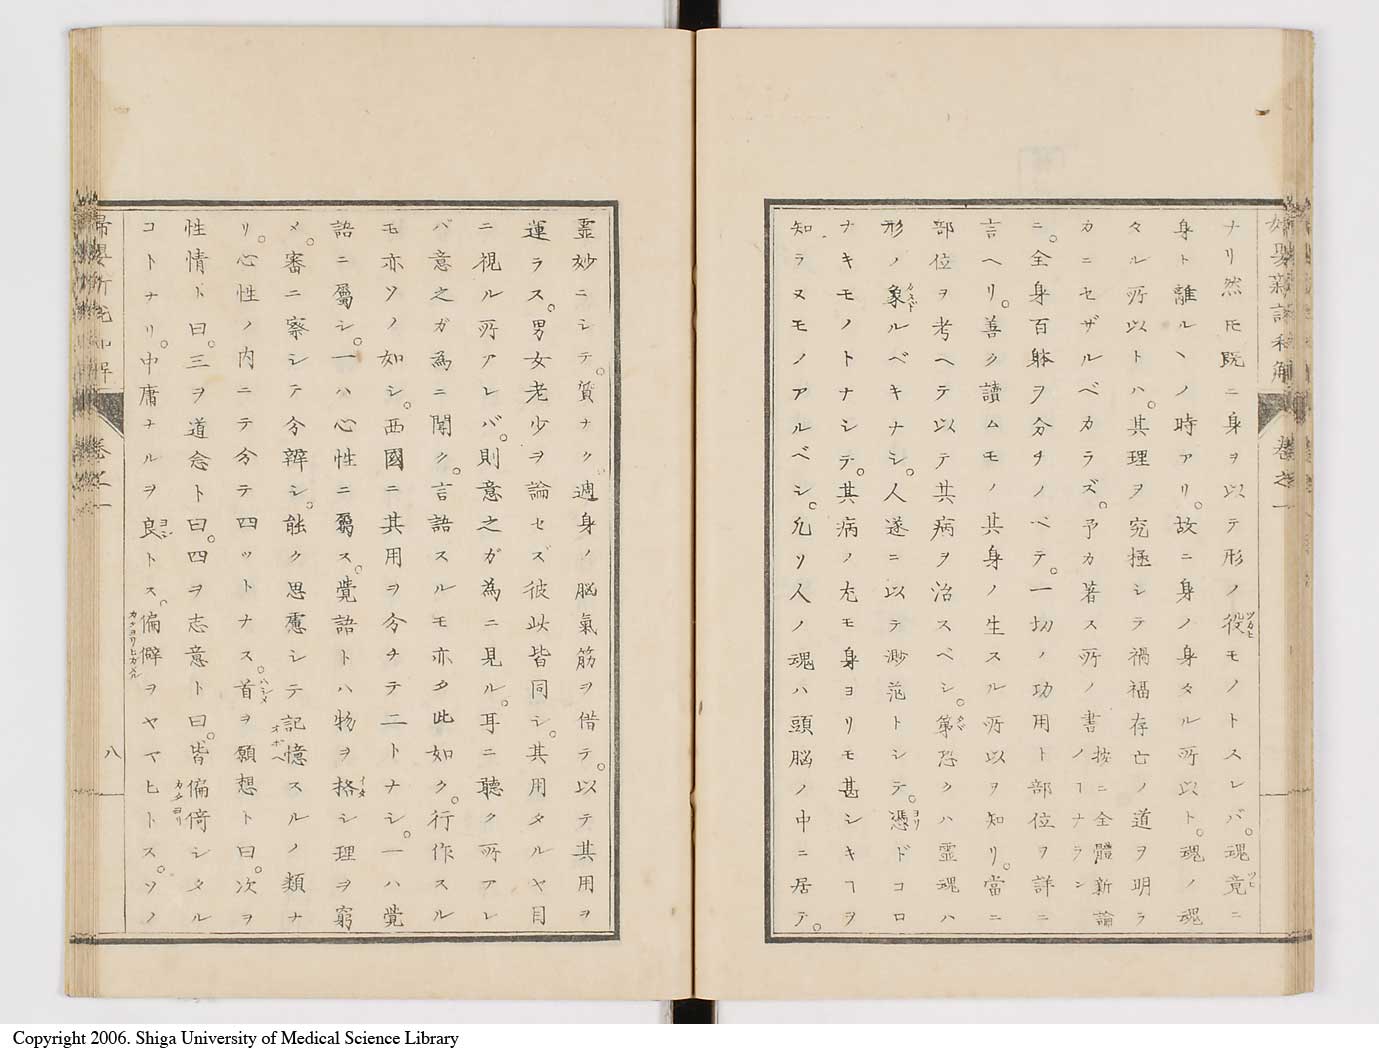 婦嬰新說和解 卷之一
ナリ然𪜈既ニ身ヲ以テ形ノ役モノトスレバ。魂竟ニ
ツカヒ
ツヒ
身ト離ルヽノ時アリ。故ニ身ノ身タル所以ト。魂ノ魂
タル所以トハ。其理ヲ究極シテ禍福存亡ノ道ヲ明ラ
カニセザルベカラズ。予カ著ス所ノ書
按ニ全體新論
ノヿナラン
ニ。全身百躰ヲ分チノベテ。一切ノ功用ト部位ヲ詳ニ
言ヘリ。善ク讀ムモノ其身ノ生スル所以ヲ知リ。當ニ
部位ヲ考ヘテ以テ其病ヲ治スベシ。第恐クハ霊魂ハ
タヾ
形ノ象ルベキナシ。人遂ニ以テ渺茫トシテ。憑ドコロ
カタド
ヨリ
ナキモノトナシテ。其病ノ尤モ身ヨリモ甚シキヿヲ
知ラヌモノアルベシ。允ソ人ノ魂ハ頭脳ノ中ニ居テ。
霊妙ニシテ。質ナク。週身ノ脳氣筋ヲ借テ。以テ其用ヲ
運ラス。男女老少ヲ論セズ彼此皆同シ。其用タルヤ目
ニ視ル所アレバ。則意之ガ為ニ見ル。耳ニ聴ク所アレ
バ意之ガ為ニ聞ク。言語スルモ亦タ此如ク。行作スル
モ亦ソノ如シ。西國ニ其用ヲ分チテ二トナシ。一ハ覺
語ニ屬シ。一ハ心性ニ屬ス。覺語トハ物ヲ格シ理ヲ窮
イタ
メ。審ニ察シテ分辨シ。能ク思慮シテ記憶スルノ類ナ
オボヘ
リ。心性ノ内ニテ分テ四ツトナス。首ヲ願想ト曰。次ヲ
ハジメ
性情ト曰。三ヲ道念ト曰。四ヲ志意ト曰。皆偏倚シタル
カタヨリ
コトナリ。中庸ナルヲ良トス。偏僻ヲヤマヒトス。ソノ
ヨシ
カタヨリヒガメル
婦嬰新說和解 卷之一 八
Copyright 2006. Shiga University of Medical Science Library